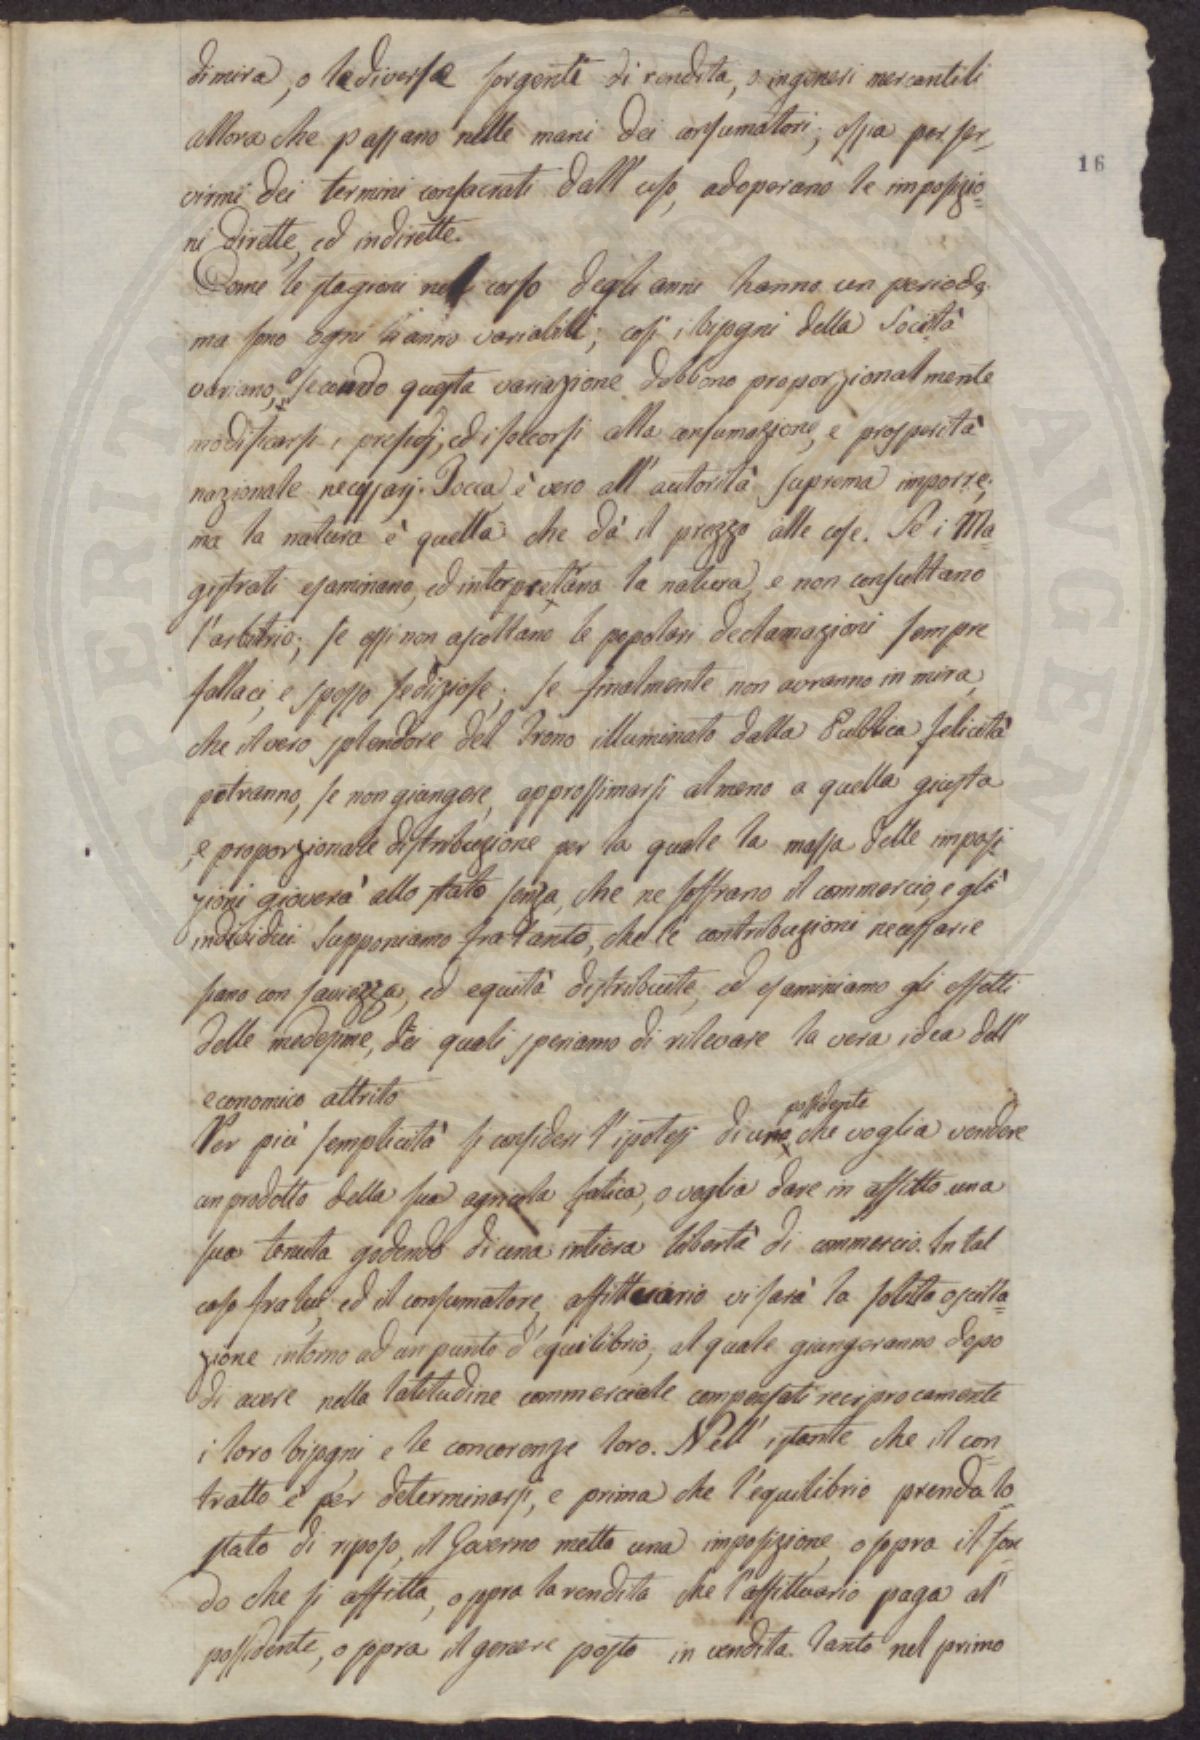 16
di mira, o le diverse sorgenti di rendita, o i generi mercantili
allora che passano nelle mani dei consumatori; ossia per ser-
virmi dei termini consacrati dall'uso, adoperano le imposizio=
ni dirette, ed indirette.
Come le stagioni nel corso degli anni hanno un periodo,
ma sono ogni anno variabili; così i bisogni della Società
variano, e secondo questa variazione debbono proporzionalmente
modificarsi i presidj, ed i soccorsi alla consumazione, e prosperità
nazionale necessarj. Tocca è vero all'autorità suprema imporre;
ma la natura è quella che dà il prezzo alle cose. Se i Ma=
gistrati esaminano, ed interpretano la natura, e non consultano
l'arbitrio; se essi non ascoltano le popolari declamazioni sempre
fallaci, e spesso sediziose; se finalmente non avranno in mira,
che il vero splendore del Trono illuminato dalla Pubblica felicità
potranno, se non giungere, approssimarsi almeno a quella giusta
e proporzionale distribuzione per la quale la massa delle imposi
zioni gioverà allo stato senza, che ne soffrano il commercio, e gl'
individui Supponiamo fra tanto, che le contribuzioni necessarie
siano con saviezza, ed equità distribuite, ed esaminiamo gli effetti
delle medesime, dei quali speriamo di rilevare la vera idea dell'
economico attrito
Per più semplicità si consideri l'ipotesi di uno possidente che voglia vendere
un prodotto della sua agricola fatica, o voglia dare in affitto una
sua tenuta godendo di una intiera libertà di commercio. In tal
caso fra lui, ed il consumatore, affittuario vi sarà la solita oscilla=
zione intorno ad un punto d'equilibrio, al quale giungeranno dopo
di avere nella latitudine commerciale compensati reciprocamente
i loro bisogni e le concorenze loro. Nell'istante che il con
tratto è per determinarsi, e prima che l'equilibrio prenda lo
stato di riposo, il Governo metta una imposizione, o sopra il fon
do che si affitta, o sopra la rendita che l'affittuario paga al
possidente, o sopra il genere posto in vendita. Tanto nel primo